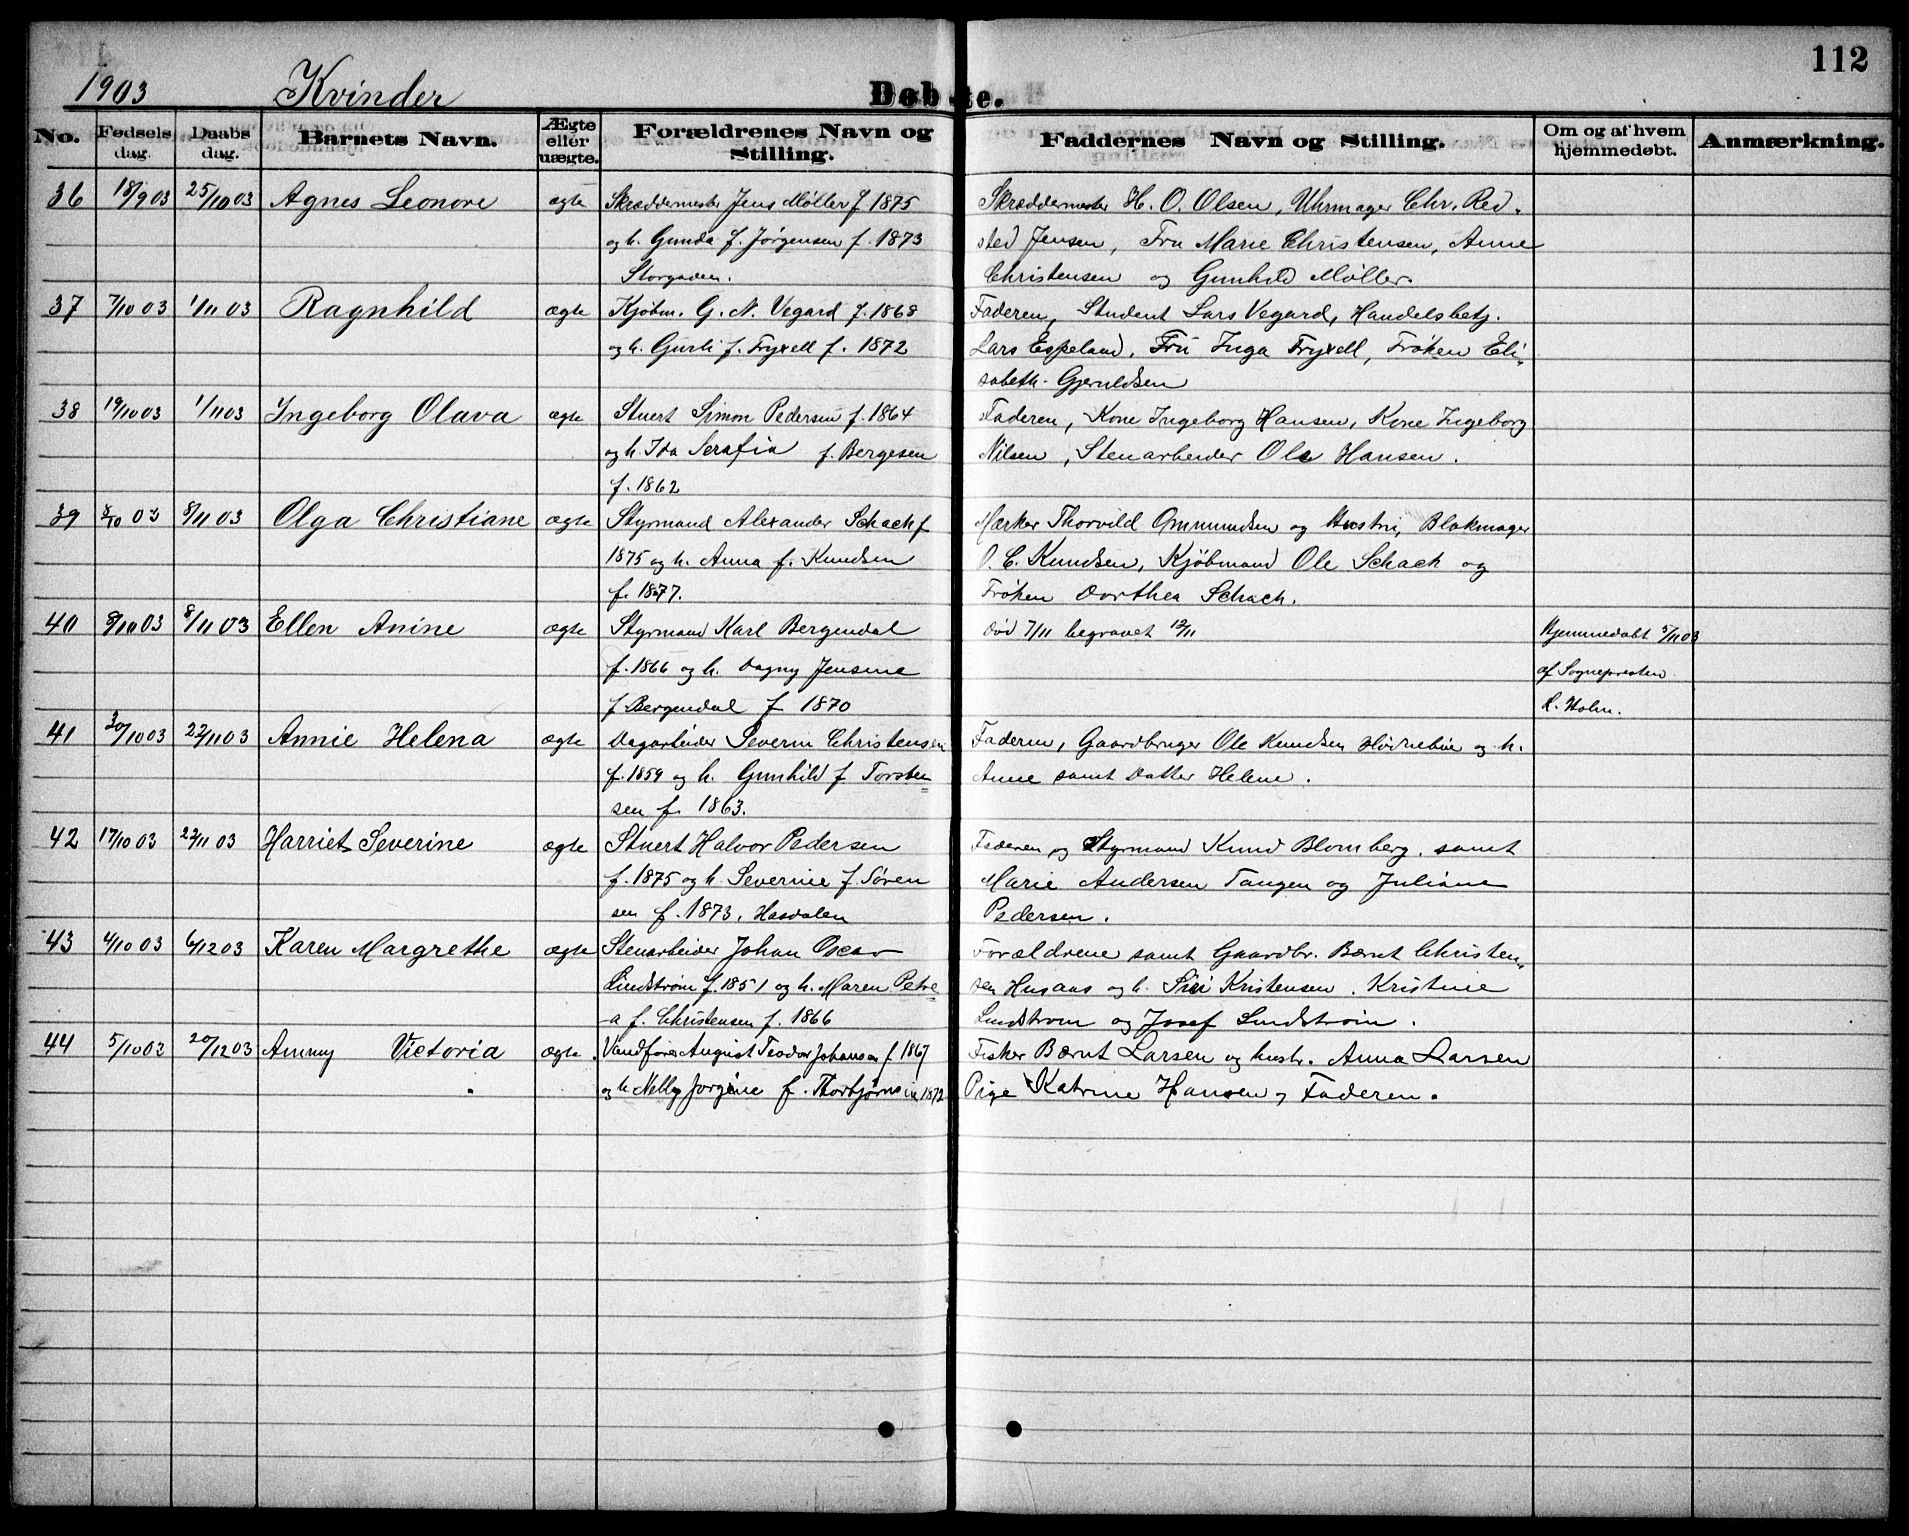 112
1903 Kvinder Døbte.
No. Fødsels dag. Daabs dag. Barnets Navn. Ægte eller uægte. Forældrenes Navn og Stilling. Faddernes Navn og Stilling. Om og af hvem hjemmedøbt. Anmærkning.
36 18/9 03 25/10 03 Agnes Leonore ægte Skræddermester Jens Møller f. 1875 Skræddermester H. O. Olsen, Uhrmager Chr. Red-
og h. Gunda f. Jørgensen f. 1873 sted Jensen, Fru Marie Christensen, Anne
Storgaden. Christensen og Gunhild Møller.
37 7/10 03 1/11 03 Ragnhild ægte Kjøbm. G. N. Vegard f. 1868 Faderen, Student Lars Vegard, Handelsbetj.
og h. Gurli f. Fryxell f. 1872 Lars Espeland, Fru Inga Fryxell, Frøken Eli-
sabeth Gjeruldsen
38 19/10 03 1/11 03 Ingeborg Olava ægte Stuert Simon Pedersen f. 1864 Faderen, Kone Ingeborg Hansen, Kone Ingeborg
og h. Ida Serafia f. Bergesen Nilsen, Stenarbeider Ole Hansen.
f. 1862
39 8/10 03 8/11 03 Olga Christiane ægte Styrmand Alexander Schach f. Mærker Thorvild Ommundsen og Hustru, Blokmager
1875 og h. Anna f. Knudsen O. C. Knudsen, Kjøbmand Ole Schach og
f. 1877. Frøken Dorthea Schach.
40 8/10 03 8/11 03 Ellen Anine ægte Styrmand Karl Bergendal død 7/11 begravet 12/11 Hjemmedøbt 5/11 03
f. 1866 og h. Dagny Jensine af Sognepresten
f. Bergendal f. 1870 R. Holm.
41 30/10 03 22/11 03 Annie Helena ægte Dagarbeider Severin Christensen Faderen, Gaardbruger Ole Knudsen og h.
f. 1859 og h. Gunhild f. Torsten Anne samt Datter Helene.
sen f. 1863.
42 17/10 03 22/11 03 Harriet Severine ægte Stuert Halvor Pedersen Faderen og Styrmand Knud Blomberg, samt
f. 1875 og h. Severine f. Søren Marie Andersen Tangen og Juliane
sen f. 1873, Hasdalen Pedersen.
43 4/10 03 6/12 03 Karen Margrethe ægte Stenarbeider Johan Oscar Forældrene samt Gaardbr. Bernt Christen-
Lindstrøm f. 1851 og h. Maren Petre sen Husaas og h. Siri Kristensen, Kristine
a f. Christensen f. 1866 Lindstrøm og Josef Lindstrøm.
44 5/10 03 20/12 03 Ammy Victoria ægte. Vandfører August Teodor Johansen f. 1867 Fisker Bernt Larsen og hustr. Anna Larsen
og h Nelly Jorgine f. Thorbjørnsen 1872 Pige Katrine Hansen og Faderen.